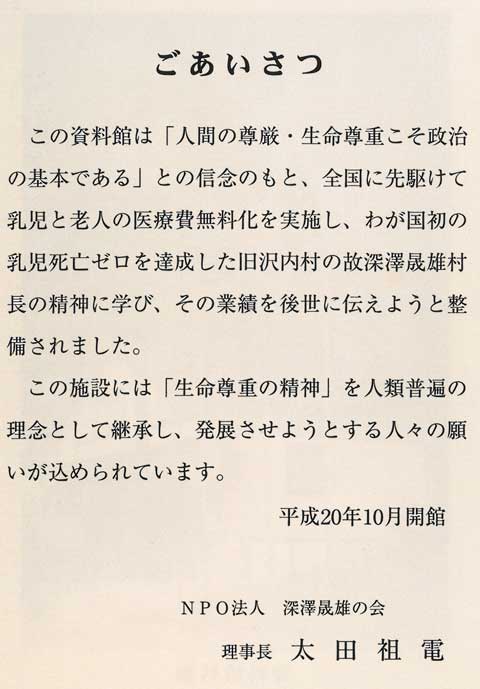 ごあいさつ
この資料館は「人間の尊厳・生命尊重こそ政治
の基本である」との信念のもと、全国に先駆けて
乳児と老人の医療費無料化を実施し、わが国初の
乳児死亡ゼロを達成した旧沢内村の故深澤晟雄村
長の精神に学び、その業績を後世に伝えようと整
備されました。
この施設には「生命尊重の精神」を人類普遍の
理念として継承し、発展させようとする人々の願
いが込められています。
平成20年10月開館
NPO法人　深澤晟雄の会
理事長　太田祖電